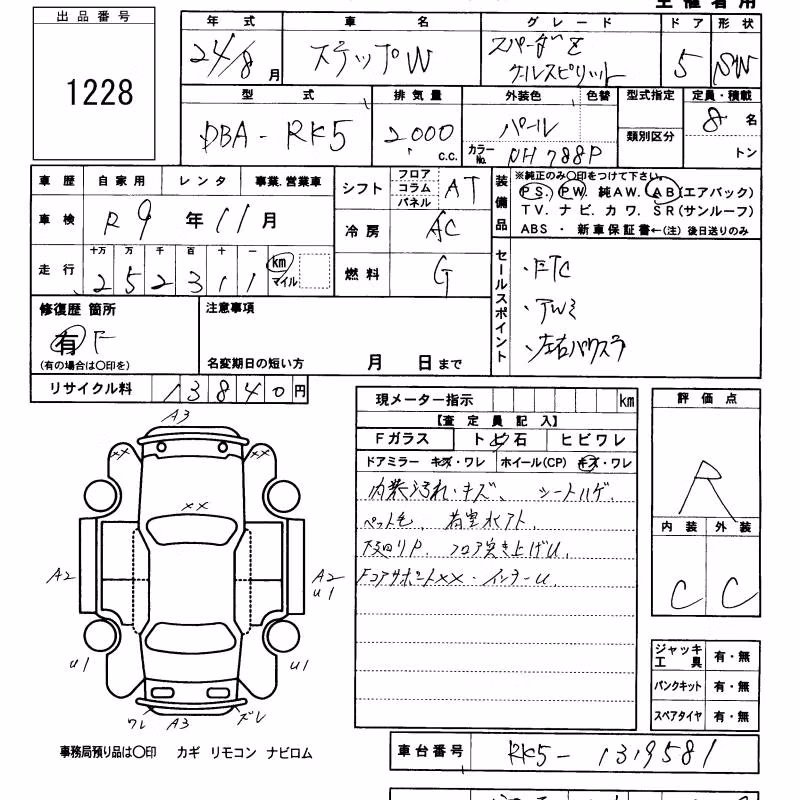 出品番号
1228
年式 車名 グレード ドア 形状
24/8月 ステップW スパーダZ クールスピリット 5 SW
型式 排気量 外装色 色替 型式指定 定員・積載
DBA-RK5 2000 c.c. パール カラーNo. NH 788P 類別区分 8名 トン
車歴 自家用 レンタ 事業.営業車
車検 R9年11月
走行 十万 万 千 百 十 一
252311 km マイル
シフト フロア コラム パネル AT
冷房 AC
燃料 G
装備品 ※純正のみ〇印をつけて下さい。
PS. PW. 純AW. AB(エアバック)
TV. ナビ. カワ. SR(サンルーフ)
ABS ・ 新車保証書←(注) 後日送りのみ
セールスポイント
・ETC
・TWミ
・左右パワスラ
修復歴 箇所
有 F
(有の場合は〇印を)
注意事項
名変期日の短い方 月 日まで
リサイクル料 13840円
現メーター指示 km
【査定員記入】
Fガラス トビ石 ヒビワレ
ドアミラー キズ・ワレ ホイール(CP) キズ・ワレ
内装汚れ・キズ、シートハゲ
ペット毛、荷室水アト、
下廻りP、フロア突き上げU、
FコアサポートXX・インナーU、
評価点
R
内装 外装
C C
ジャッキ 工具 有・無
パンクキット 有・無
スペアタイヤ 有・無
A3
XX XX
XX
A2 A2
U1
U1 U1
ワレ A3 ズレ
事務局預り品は〇印 カギ リモコン ナビロム
車台番号 RK5-1319581